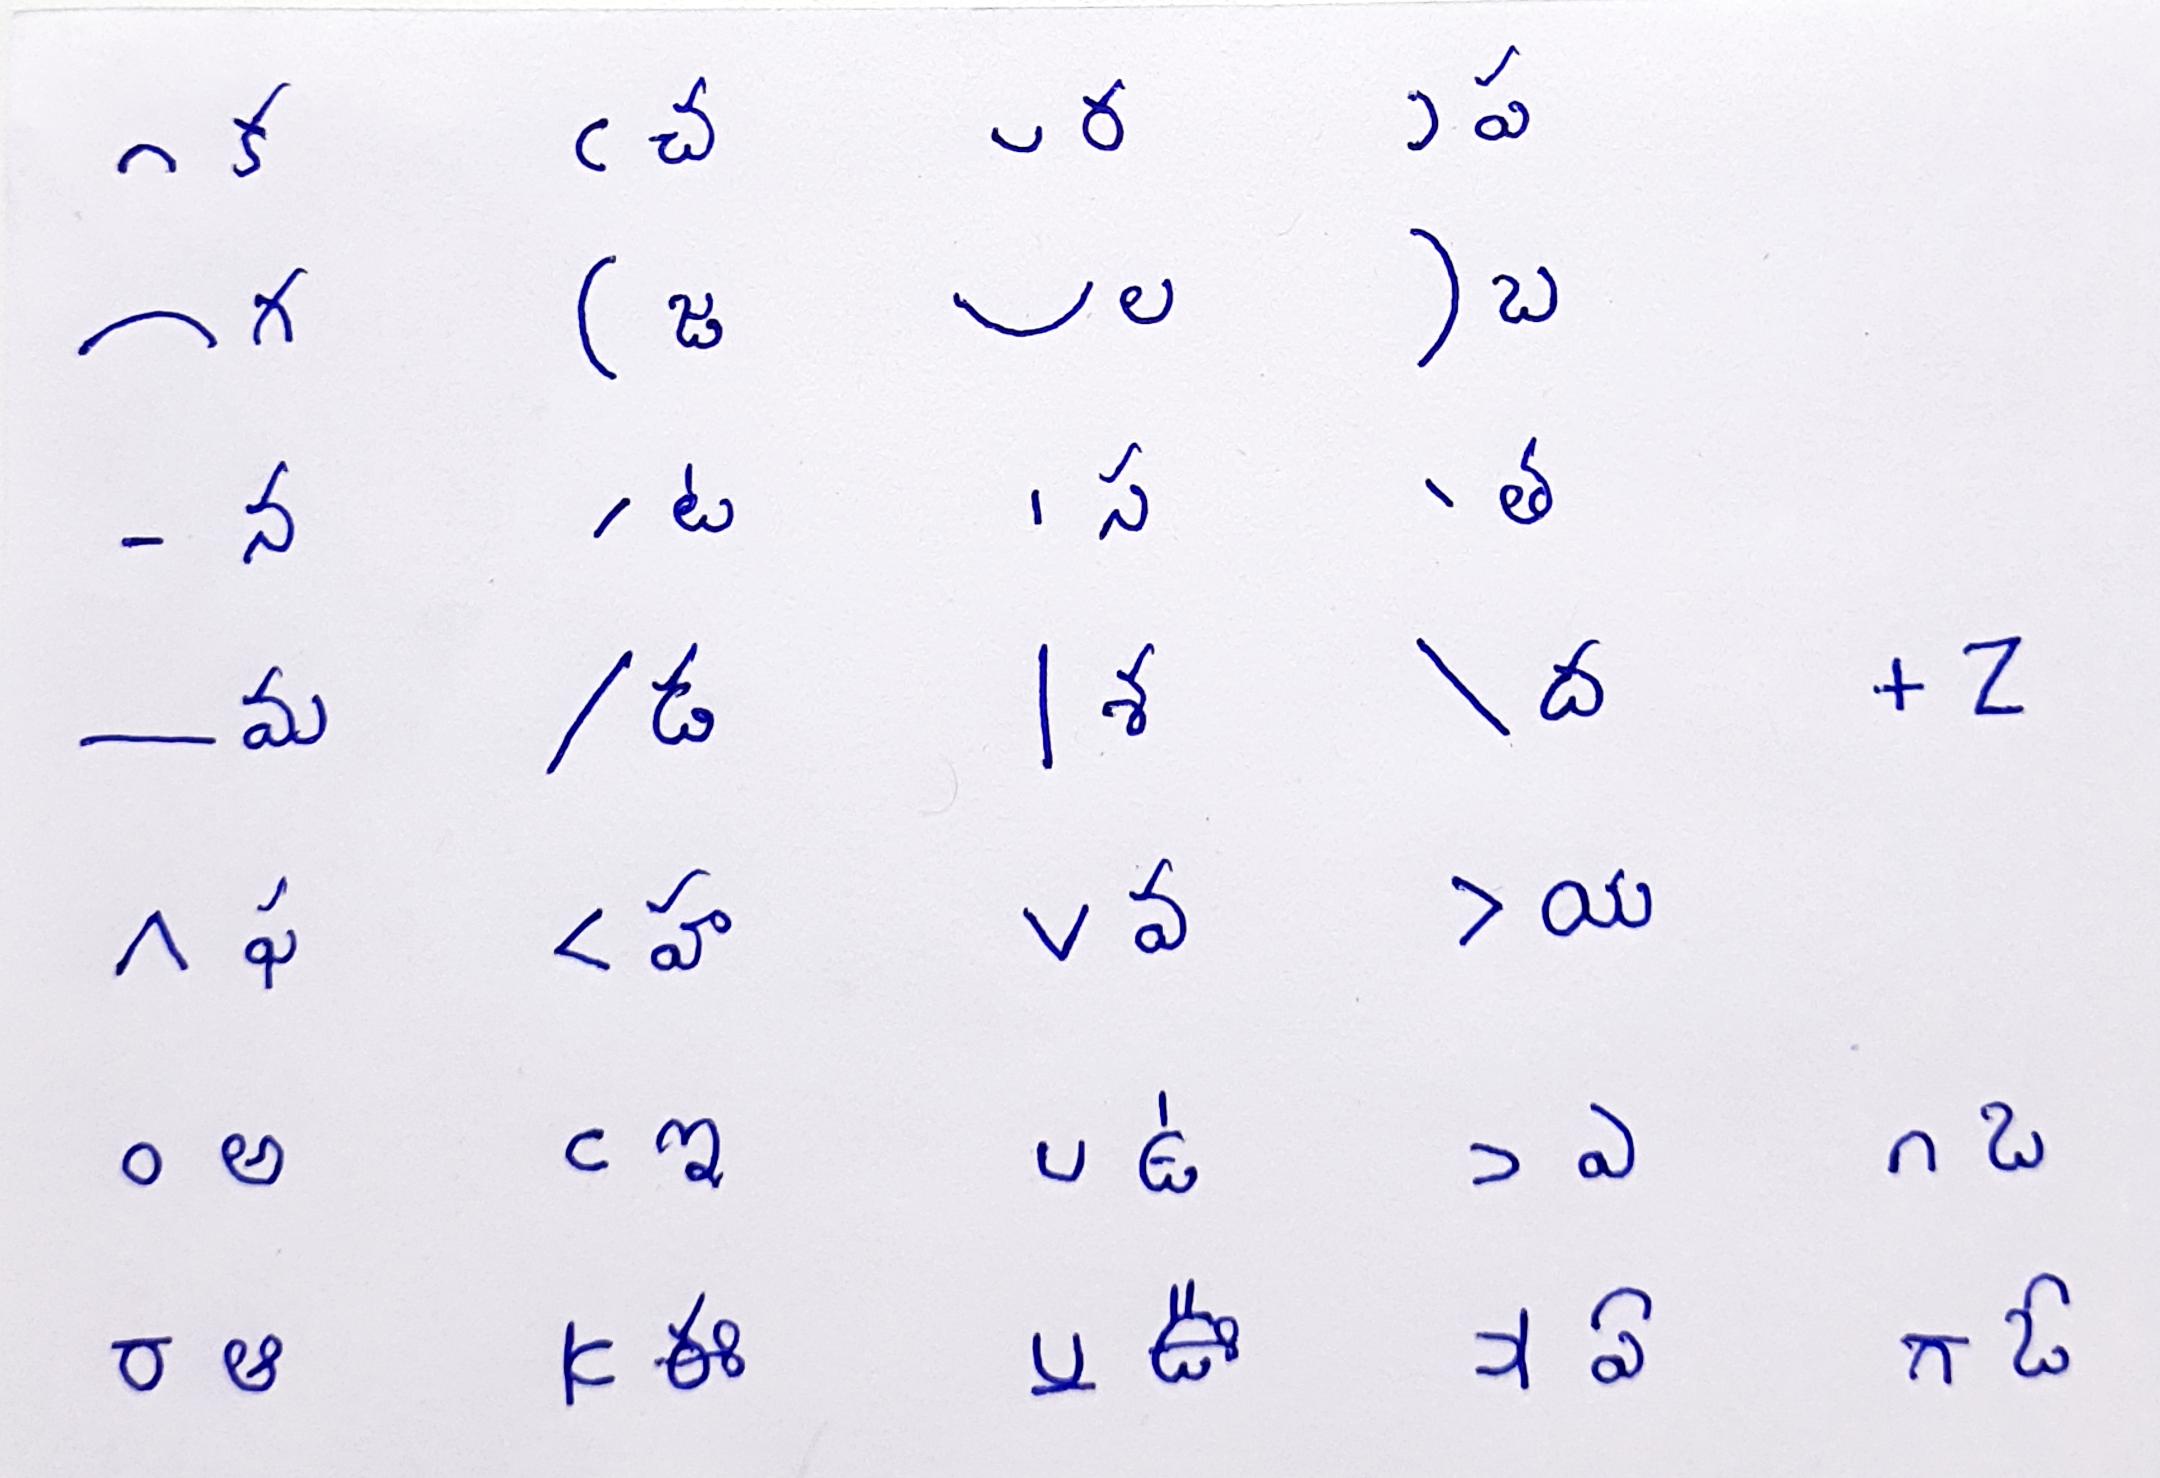 ∩ క ( చ ∪ ర ) ప
⌒ గ ( జ ⌣ ల ) బ
- న / ట ı స \ త
— మ / డ | శ \ ద + Z
∧ ఫ < హ ∨ వ > య
o అ ⊂ ఇ ∪ ఉ ⊃ ఎ ∩ ఒ
ఆ ఈ ఊ ఏ ఓ